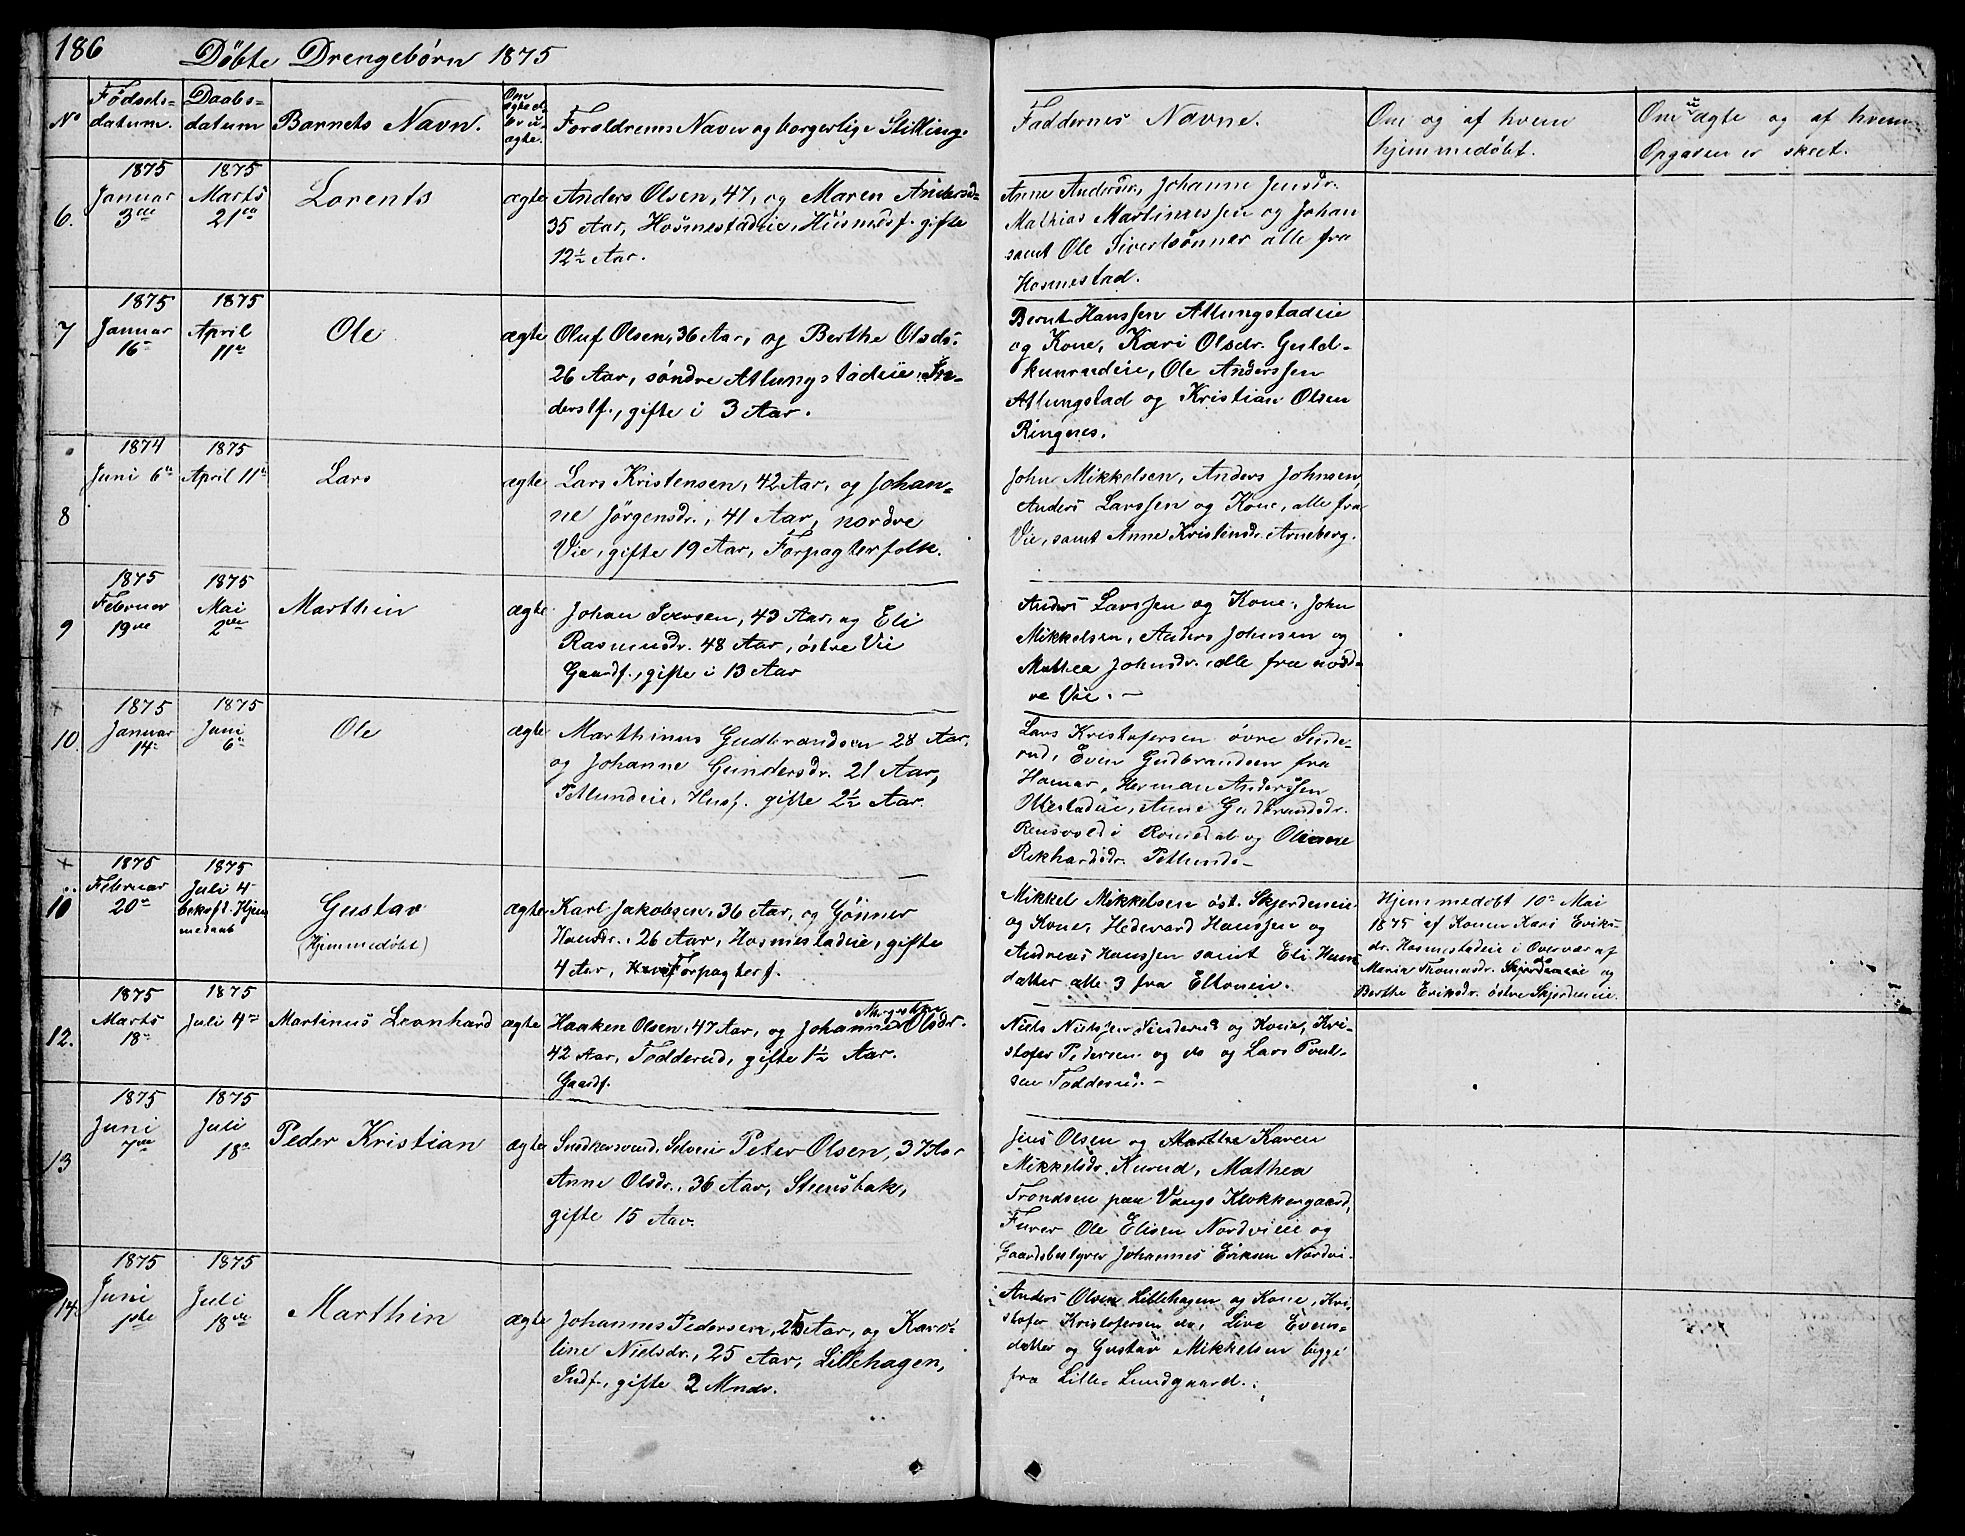 186
Döbte Drengebørn 1875
No
Fødsels-
datum.
Daabs-
datum
Barnets Navn.
Om
ægte el-
ler u-
ægte.
Forældrenes Navn og borgerlige Stilling.
Faddernes Navne.
Om og af hvem
hjemmedøbt.
Om uægte og af hvem
Opgaven er skeet.
6.
1875
Januar
3die
1875
Marts
21de
Lorents
ægte
Anders Olsen, 47, og Maren Andersd-
35 Aar, Hosmestadeie, Huusmdsf. gifte
12½ Aar.
Anne Andersdr., Johanne Jensdr.
Mathias Martinussen og Johan
samt Ole Sivertsønner alle fra
Hosmestad.
7
1875
Januar
16
1875
April
11te
Ole
ægte
Oluf Olsen, 36 Aar, og Berthe Olsds.
26 Aar, søndre Atlungstadeie, In-
derstf., gifte i 3 Aar.
Bernt Hanssen Atlungstadeie
og Kone, Kari Olsdr. Guld-
kunrudeie, Ole Anderssen
Atlungstad og Kristian Olsen
Ringnes.
8
1874
Juni 6te
1875
April 11te
Lars
ægte
Lars Kristensen, 42 Aar, og Johan-
ne Jørgensdr., 41 Aar, nordre
Vie, gifte 19 Aar, Forpagterfolk.
John Mikkelsen, Anders Johnsen,
Anders Larssen og Kone, alle fra
Vie, samt Anne Kristensdr. Arneberg.
9
1875
Februar
19de
1875
Mai
2den
Marthin
ægte
Johan Iversen, 43 Aar, og Eli
Rasmusdr. 48 Aar, østre Vie
Gaardf., gifte i 13 Aar
Anders Larssen og Kone, John
Mikkelsen, Anders Johnsen og
Mathea Johnsdr. alle fra nord-
re Vie. -
+
10
1875
Januar
14
1875
Juni
6te
Ole
ægte
Marthinus Gudbrandsen 28 Aar,
og Johanne Gundersdr. 21 Aar,
Petlundeie, Husf. gifte 2½ Aar.
Lars Kristofersen øvre Sude-
rud, Even Gudbrandsen fra
Hamar, Herman Anderssen
Ottestadeie, Anne Gudbrandsdr.
Rensvold i Romedal og Oliane
Rikhardsdr. Petlunds-
+
10
1875
Februar
20de
1875
Juli 4
bekræft. Hjem
medaab
Gustav
(Hjemmedøbt)
ægte
Karl Jakobsen, 36 Aar, og Gønner
Hansdr., 26 Aar, Hosmestadeie, gifte
4 Aar, Forpagterf.
Mikkel Mikkelsen øst. Skjerdeneie
og Kone, Hedevard Hanssen og
Andreas Hanssen samt Eli Hans
datter alle 3 fra Eltoneie.
Hjemmedøbt 10de Mai
1875 af Konen Kari Eriks-
dr. Hosmestadeie i Overvær af
Maria Thomasdr. Skjerdeneie og
Berthe Eriksdr. østre Skjerdeneie.
12.
1875
Marts
18
1875
Juli 4de
Martinus Leonhard
ægte
Haaken Olsen, 47 Aar, og Johanne Olsdr.
42 Aar, Todderud, gifte 1½ Aar.
Gaardf.
Niels Nielssen og Kone, Kri-
stofer Pedersen og do og Lars Poul-
sen Todderud. -
13
1875
Juni
7de
1875
Juli
18de
Peder Kristian
ægte
Snedkersvend, Selveier Peter Olsen, 37 Aar
Anne Olsdr., 36 Aar, Steensbak,
gifte 15 Aar.
Jens Olsen og Marthe Karen
Mikkelsdr. Kurud, Mathea
Trondsen paa Vangs Klokkergaard,
Furer Ole Elisen Nordvieie og
Gaardsbestyrer Johannes Eriksen Nordvi-
14.
1875
Juni
1ste
1875
Juli
18de
Marthin
ægte
Johannes Pedersen, 25 Aar, og Karo-
line Nielsdr., 25 Aar, Lillehagen,
Indf., gifte 2 Mndr.
Anders Olsen Lillehagen og Kone, Kri
stofer Kristofersen do, Live Evens-
datter og Gustav Mikkelsen begge
fra Lille Lundgaard.